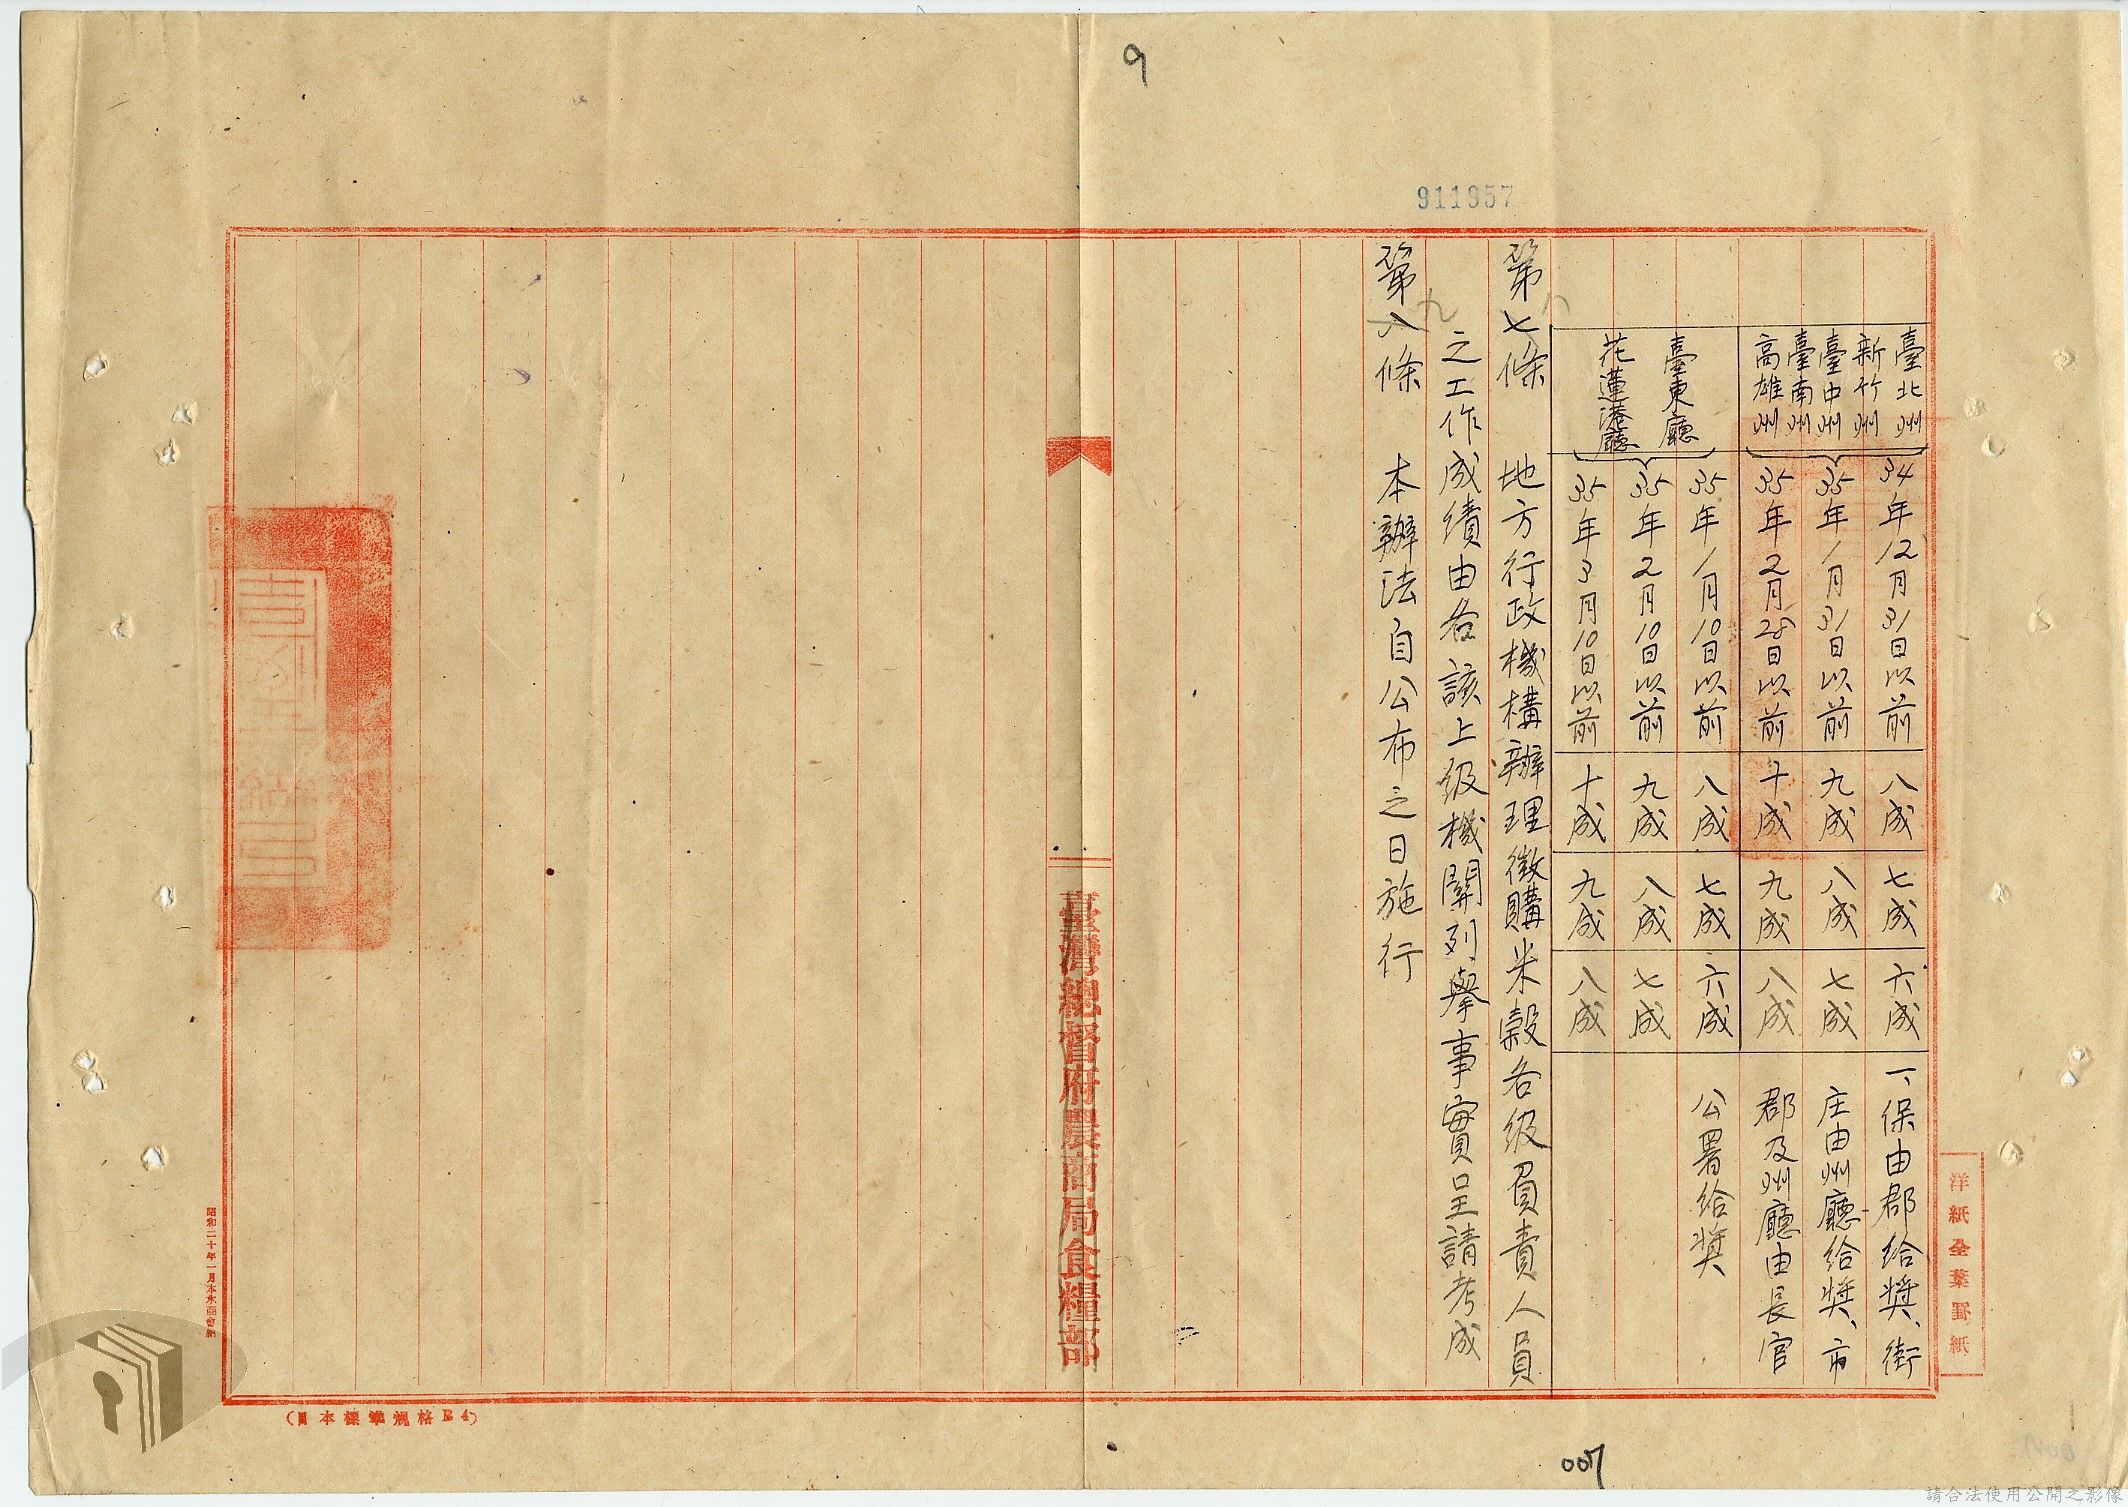 9
911957
臺北州
新竹州
臺中州
臺南州
高雄州
34年12月31日以前
八成
七成
六成
35年1月31日以前
九成
八成
七成
35年2月28日以前
十成
九成
八成
一、保由郡給奬、街
庄由州廳給奬、市
郡及州廳由長官
公署給奬
臺東廳
花蓮港廳
35年1月10日以前
八成
七成
六成
35年2月10日以前
九成
八成
七成
35年3月10日以前
十成
九成
八成
第七條 地方行政機構辦理徵購米穀各級負責人員
八
之工作成績由各該上級機關列舉事實呈請考成
第八條 本辦法自公布之日施行
九
臺灣總督府農商局食糧部
洋紙全葉罫紙
(日本標準規格B4)
007
請合法使用公開之影像